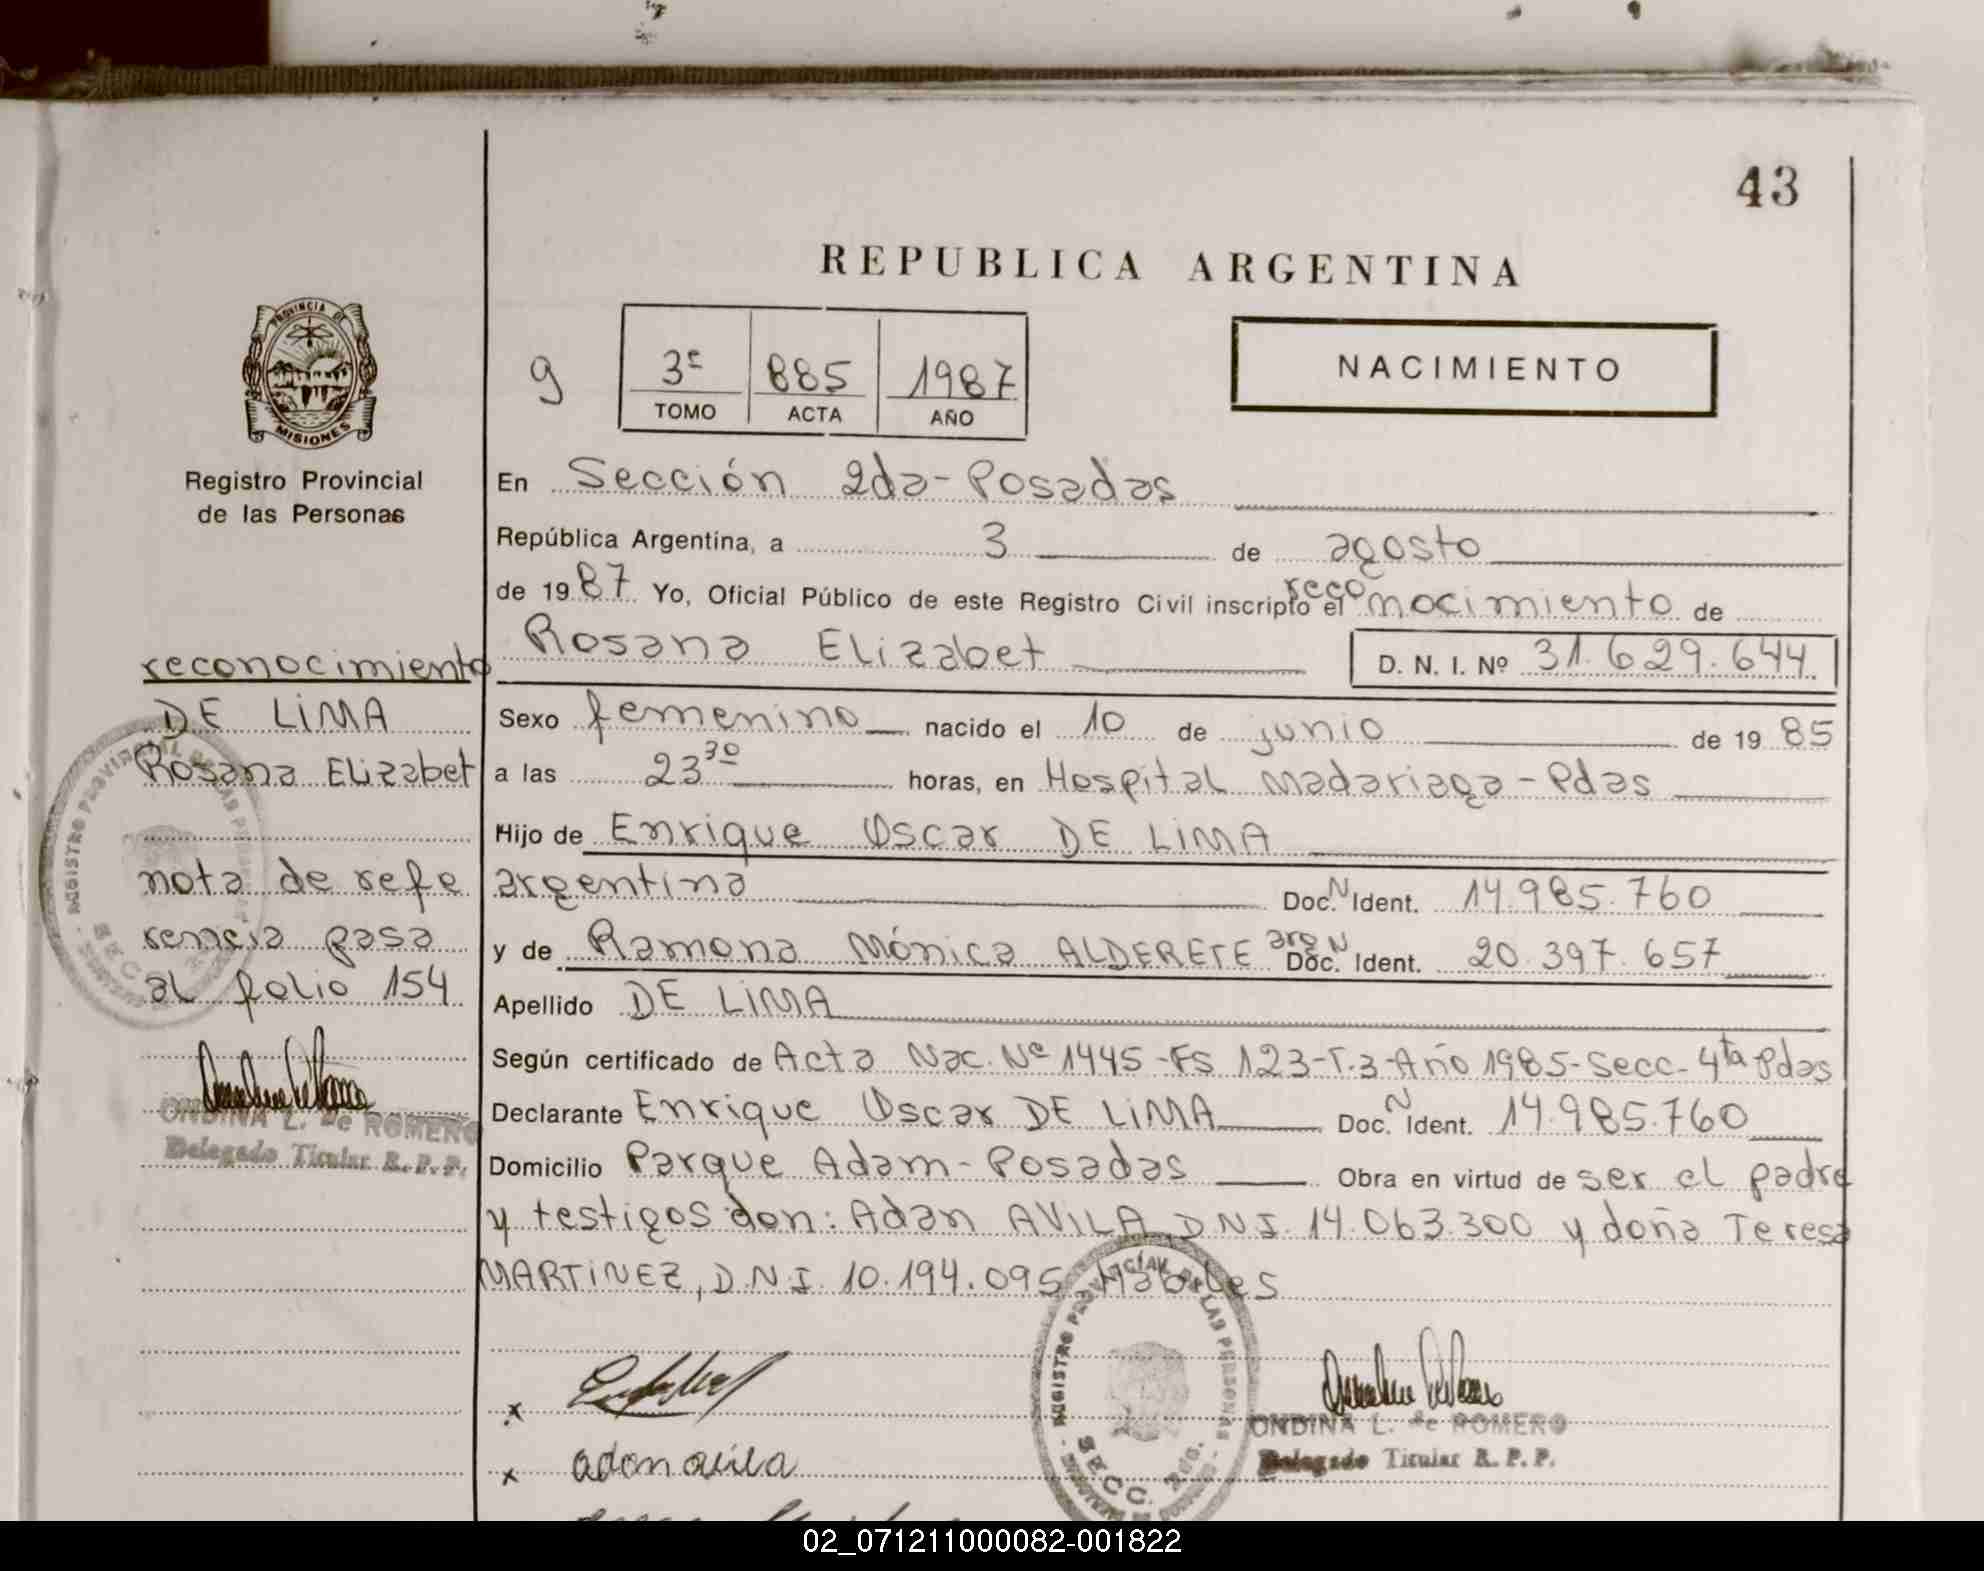 43
REPUBLICA ARGENTINA
PROVINCIA DE
MISIONES
Registro Provincial
de las Personas
9
3º 885 1987
TOMO ACTA AÑO
NACIMIENTO
En Sección 2da-Posadas
República Argentina, a 3 de agosto
de 1987 Yo, Oficial Público de este Registro Civil inscripto el reconocimiento de
Rosana Elizabet D. N. I. Nº 31.629.644
Sexo femenino nacido el 10 de junio de 1985
a las 23 30 horas, en Hospital Madariaga-Pdas
Hijo de Enrique Oscar DE LIMA
argentina Doc. N Ident. 14.985.760
y de Ramona Mónica ALDERETE arg Doc. N Ident. 20.397.657
Apellido DE LIMA
Según certificado de Acta Nac. Nº 1445-Fs 123-T.3-Año 1985-Secc-4ta Pdas
Declarante Enrique Oscar DE LIMA Doc. N Ident. 14.985.760
Domicilio Parque Adam-Posadas Obra en virtud de ser el padre
y testigos don: Adan AVILA D N I. 14.063.300 y doña Teresa
MARTINEZ, D.N.I. 10.194.095 Habiles
reconocimiento
DE LIMA
Rosana Elizabet
nota de refe
rencia pasa
al folio 154
ONDINA L. de ROMERO
Delegado Titular R. P. P.
REGISTRO PROVINCIAL DE LAS PERSONAS
SECC. 2da.
x
x adan avila
ONDINA L. de ROMERO
Delegado Titular R. P. P.
02_071211000082-001822